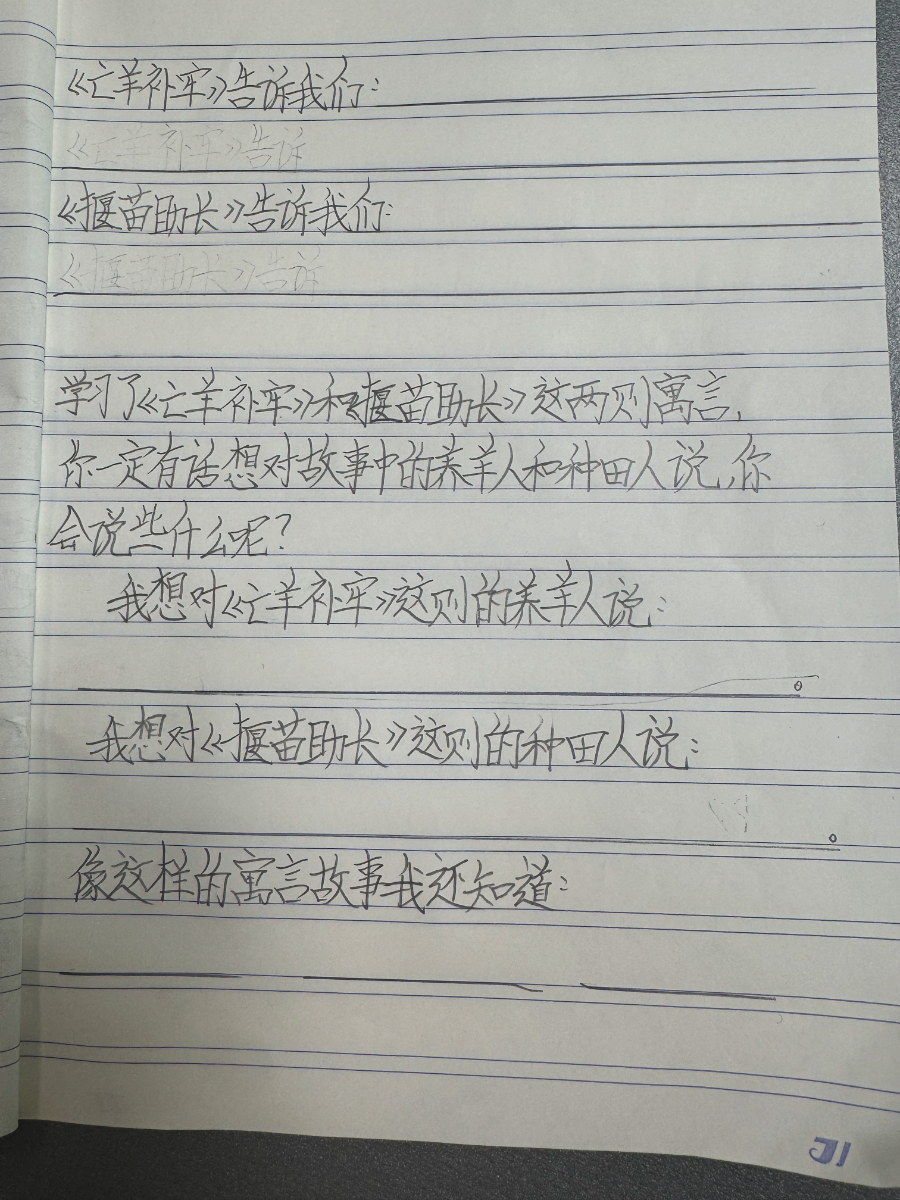 《亡羊补牢》告诉我们:
《亡羊补牢》告诉
《揠苗助长》告诉我们:
《揠苗助长》告诉
学习了《亡羊补牢》和《揠苗助长》这两则寓言,
你一定有话想对故事中的养羊人和种田人说,你
会说些什么呢?
我想对《亡羊补牢》这则的养羊人说:
。
我想对《揠苗助长》这则的种田人说:
。
像这样的寓言故事我还知道: